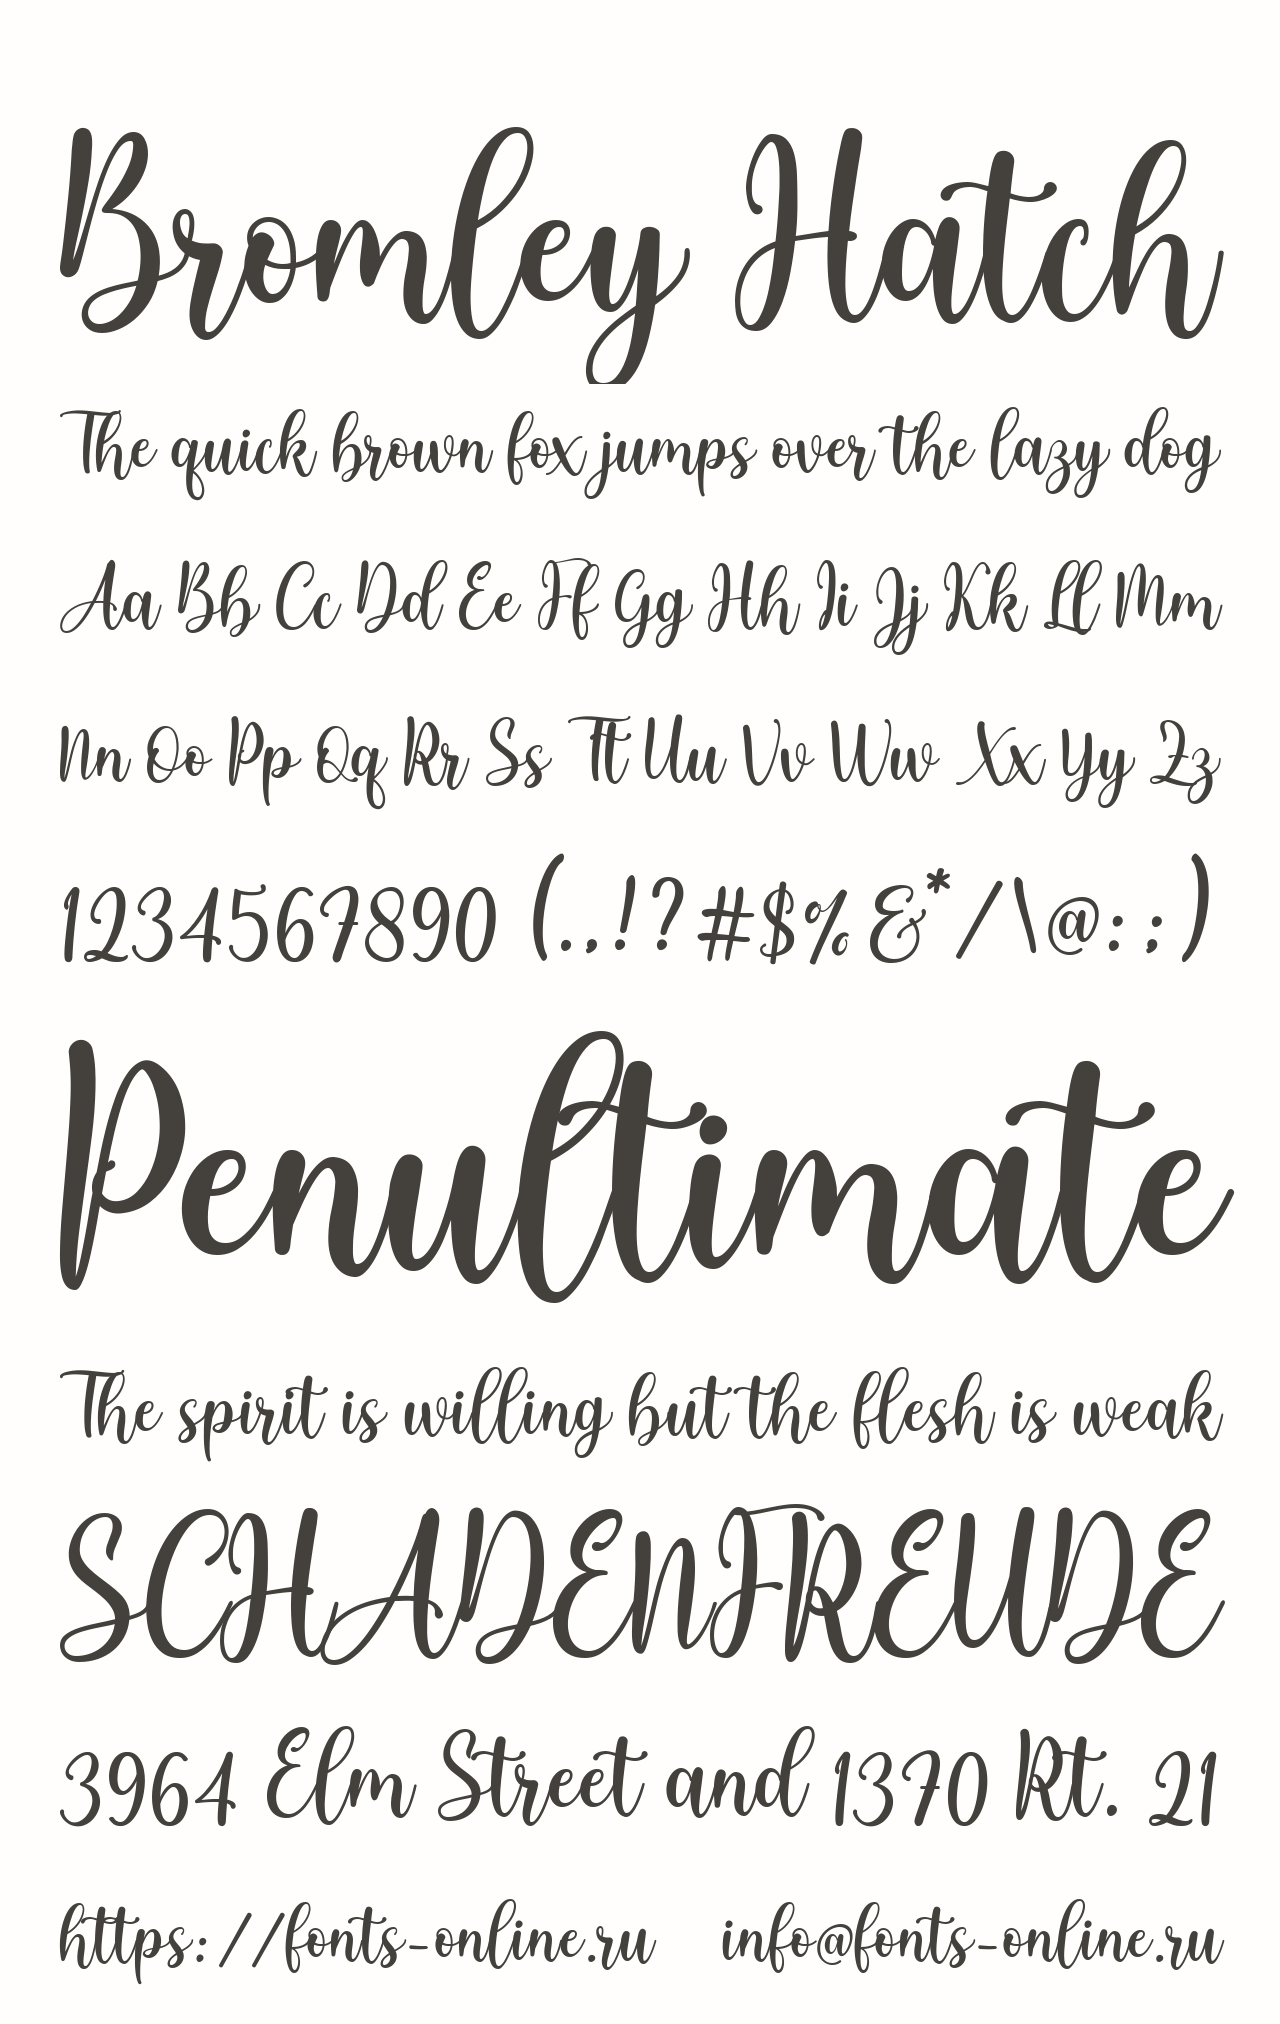 Bromley Hatch
The quick brown fox jumps over the lazy dog
Aa Bb Cc Dd Ee Ff Gg Hh Ii Jj Kk Ll Mm
Nn Oo Pp Qq Rr Ss Tt Uu Vv Ww Xx Yy Zz
1234567890 (.,!?#$%&*/\@:;)
Penultimate
The spirit is willing but the flesh is weak
SCHADENFREUDE
3964 Elm Street and 1370 Rt. 21
https://fonts-online.ru info@fonts-online.ru